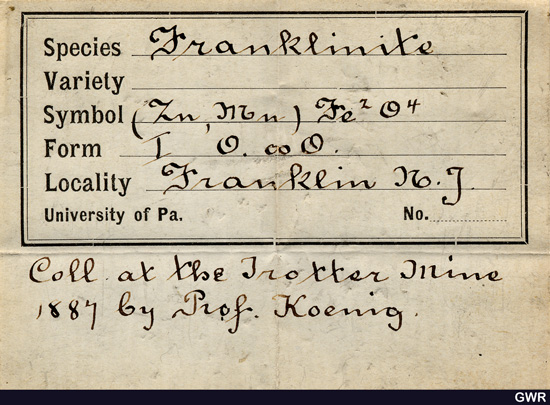 Species Franklinite
Variety
Symbol (Zn, Mn) Fe² O⁴
Form I O. ∞O.
Locality Franklin N.J.
University of Pa. No.
Coll. at the Trotter Mine
1887 by Prof. Koenig.
GWR